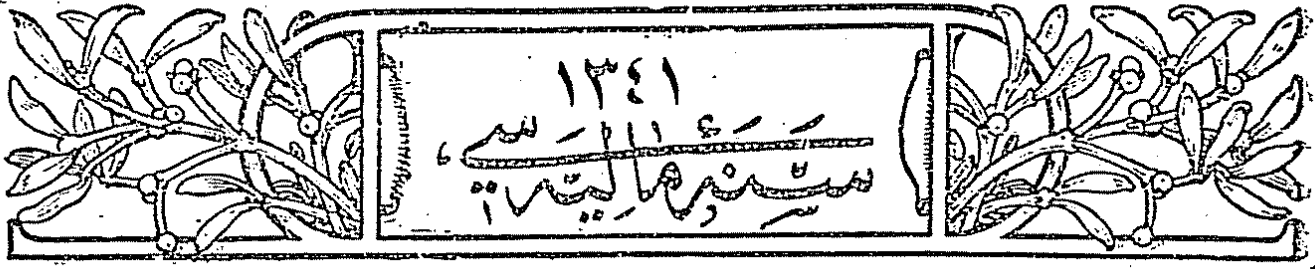 ١٣٤١
سنهٔ مالیه سی